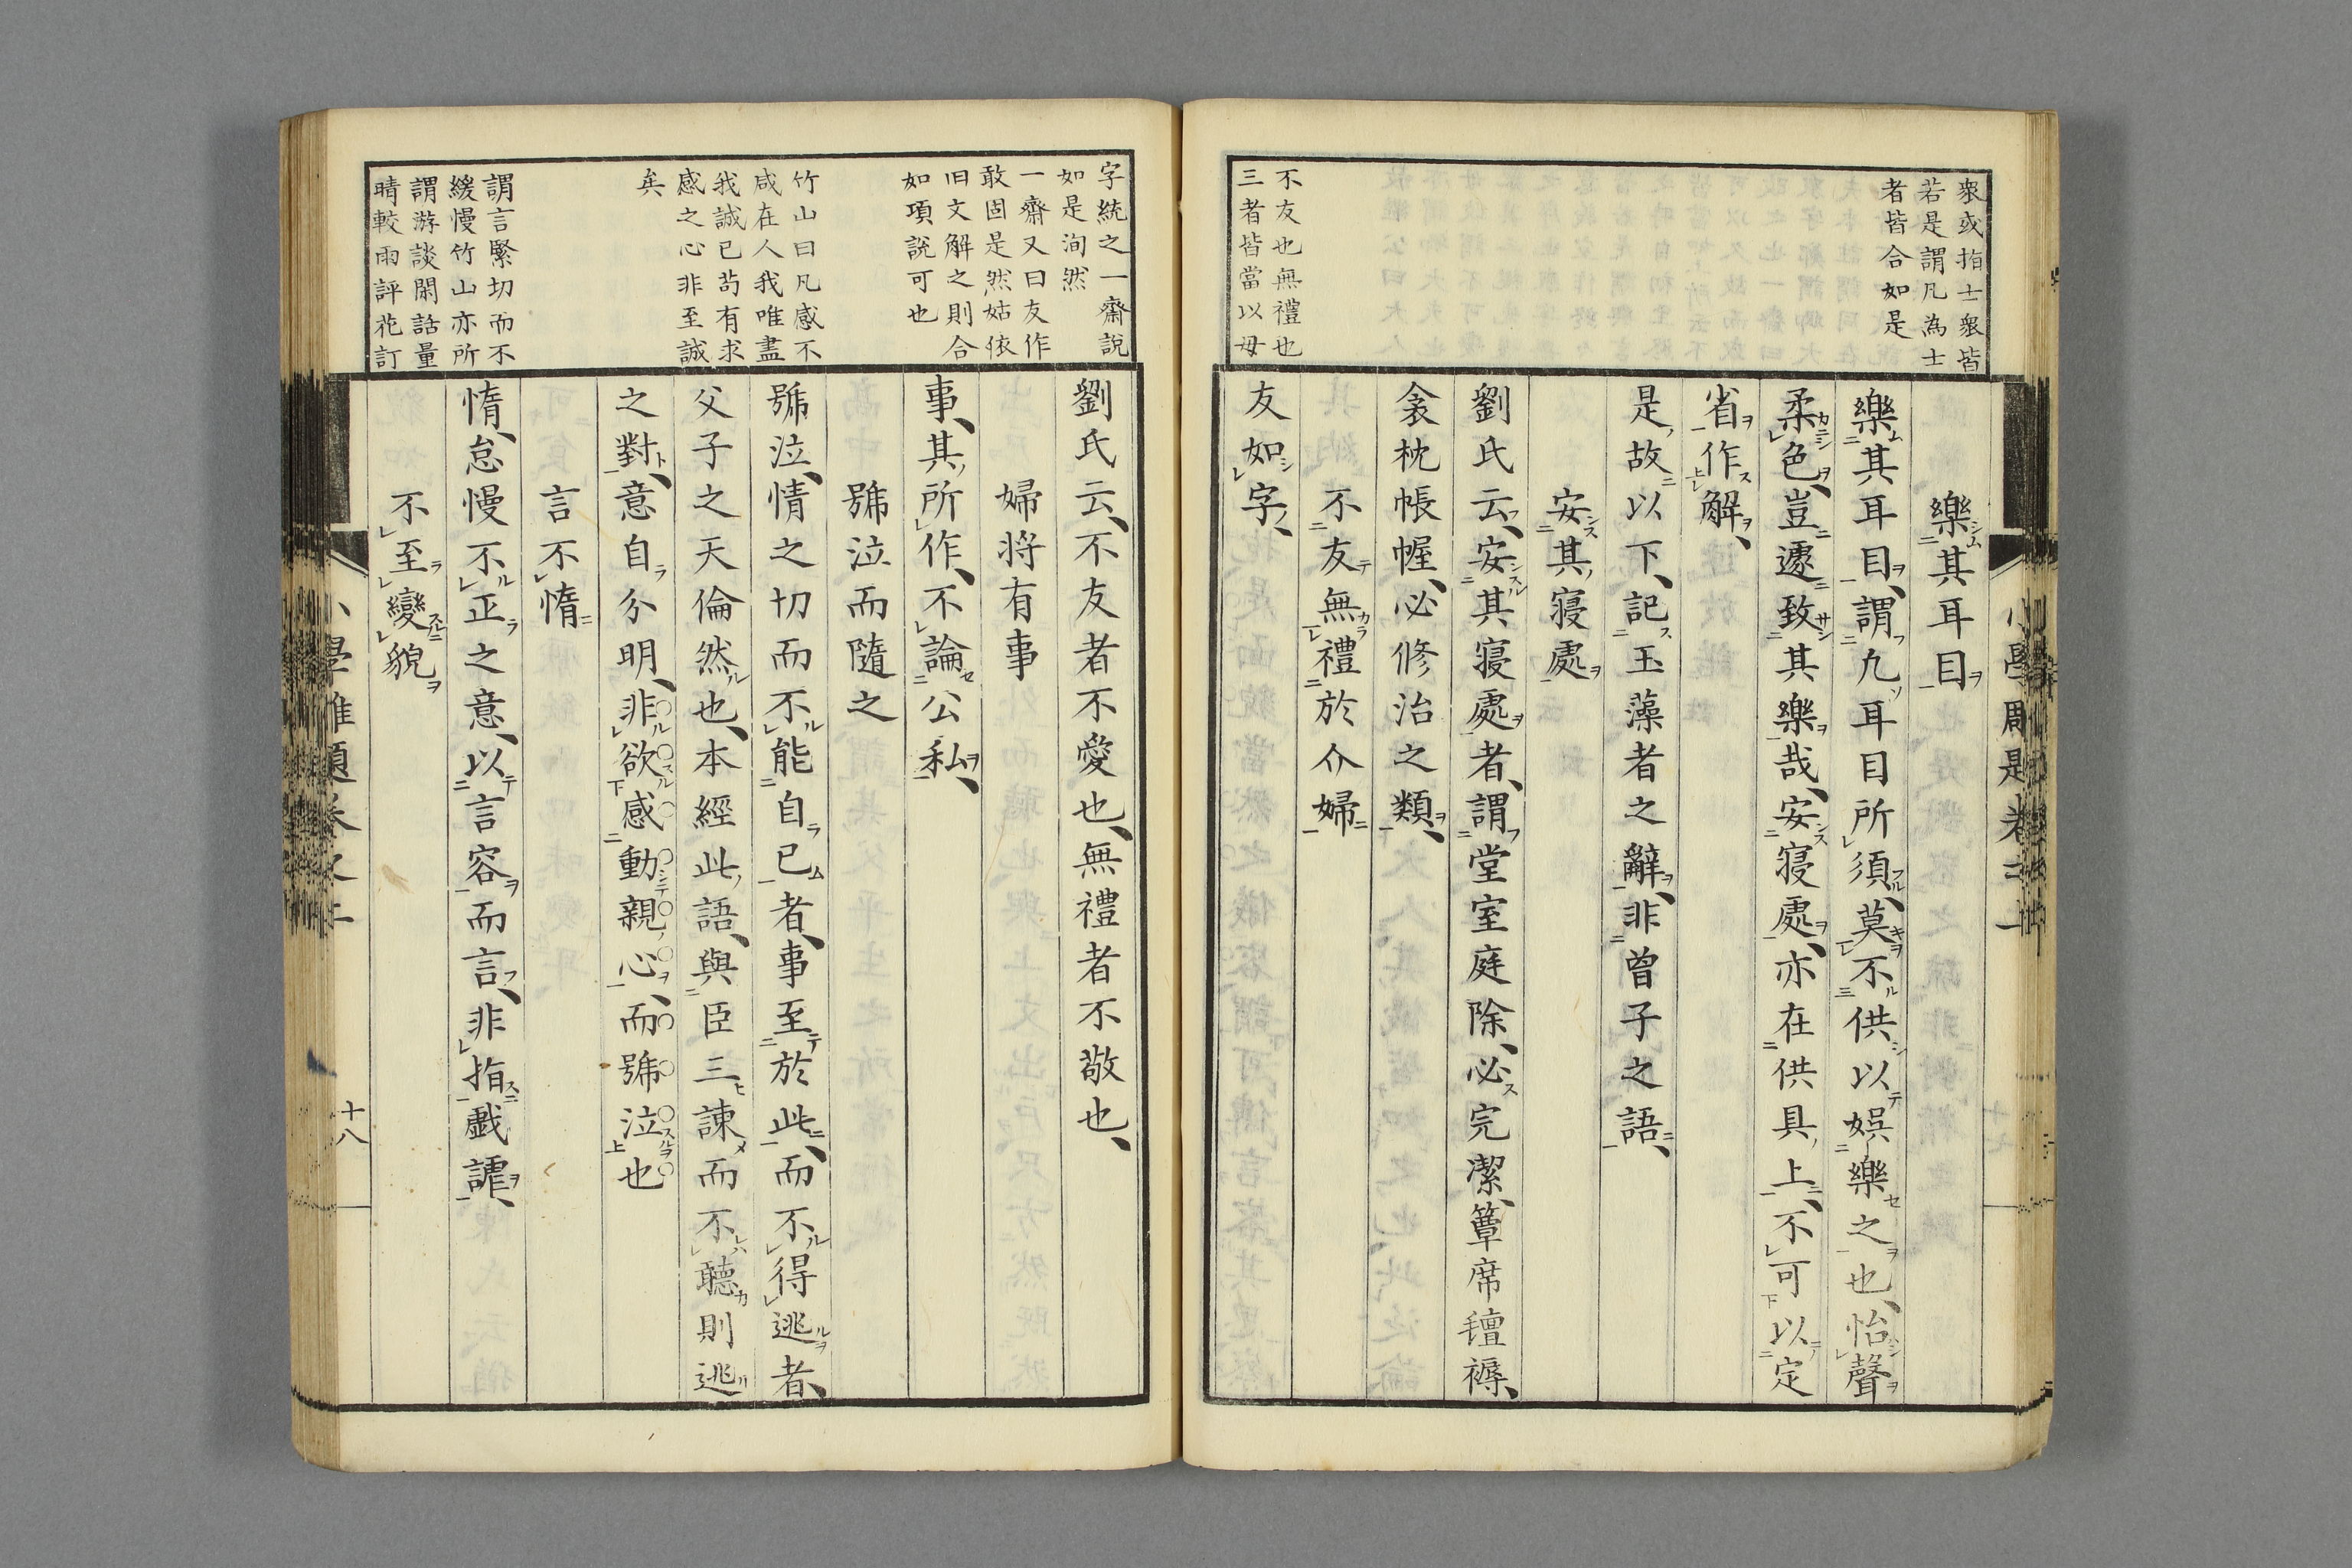 衆或指士衆皆
若是謂凡為士
者皆合如是
不友也無禮也
三者皆當以毋
樂其耳目
樂其耳目、謂凡耳目所須、莫不供以娯樂之也、怡聲
柔色、豈遽致其樂哉、安寢處、亦在供具上、不可以定
省作解、
是故以下、記玉藻者之辭、非曾子之語、
安其寢處
劉氏云、安其寢處者、謂堂室庭除、必完潔、簟席氊褥、
衾枕帳幄、必修治之類、
不友無禮於介婦
友如字、
字統之一齋說
如是洵然
一齋又曰友作
敢固是然姑依
旧文解之則合
如項說可也
竹山曰凡感不
咸在人我唯盡
我誠已苟有求
感之心非至誠
矣
謂言緊切而不
緩慢竹山亦所
謂游談閑話量
晴較雨評花訂
劉氏云、不友者不愛也、無禮者不敬也、
婦将有事
事、其所作、不論公私、
號泣而隨之
號泣、情之切而不能自已者、事至於此、而不得逃者、
父子之天倫然也、本經此語、與臣三諫而不聽則逃
之對、意自分明、非欲感動親心、而號泣也
言不惰
惰、怠慢不正之意、以言容而言、非指戯謔、
不至變貌
十八